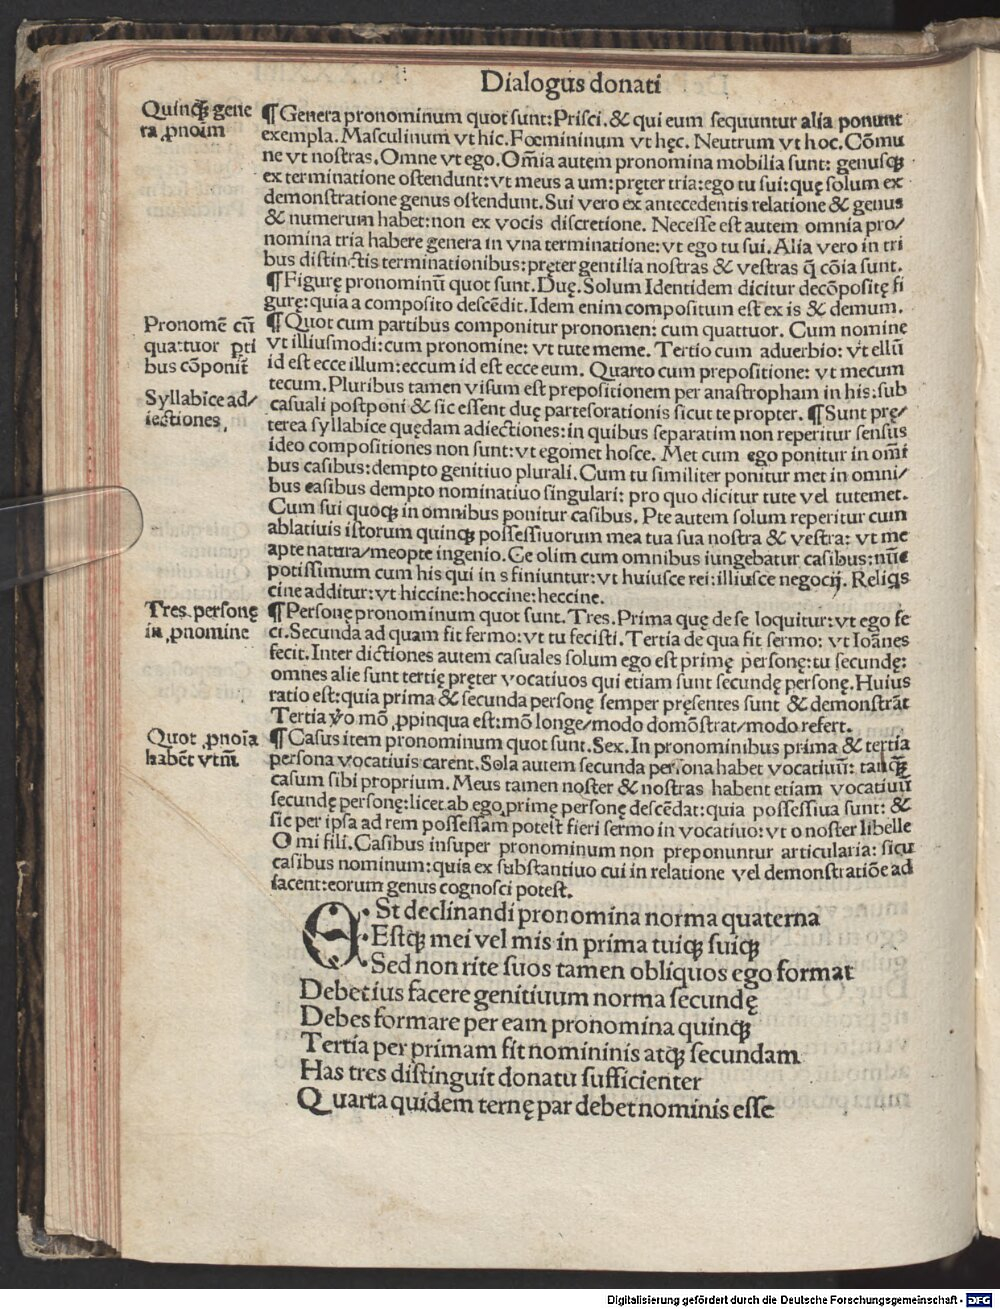 Dialogus donati
Quinqꝫ gene
ra ꝓnoim
¶ Genera pronominum quot sunt: Prisci. & qui eum sequuntur alia ponunt
exempla. Masculinum vt hic. Foemininum vt hęc. Neutrum vt hoc. Cõmu
ne vt nostras. Omne vt ego. Om̃ia autem pronomina mobilia sunt: genusqꝫ
ex terminatione ostendunt: vt meus a um: pręter tria: ego tu sui: quę solum ex
demonstratione genus ostendunt. Sui vero ex antecedentis relatione & genus
& numerum habet: non ex vocis discretione. Necesse est autem omnia pro/
nomina tria habere genera in vna terminatione: vt ego tu sui. Alia vero in tri
bus distinctis terminationibus: pręter gentilia nostras & vestras q̃ cõia sunt.
¶ Figurę pronominũ quot sunt. Duę. Solum Identidem dicitur decõpositę fi
gurę: quia a composito descẽdit. Idem enim compositum est ex is & demum.
Pronomẽ cũ
quattuor pti
bus cõponit̃
¶ Quot cum partibus componitur pronomen: cum quattuor. Cum nomine
vt illiusmodi: cum pronomine: vt tute meme. Tertio cum aduerbio: vt ellũ
id est ecce illum: eccum id est ecce eum. Quarto cum prepositione: vt mecum
tecum. Pluribus tamen visum est prepositionem per anastropham in his: sub
Syllabice ad/
iectiones.
casuali postponi & sic essent duę partesorationis sicut te propter. ¶ Sunt prę/
terea syllabice quędam adiectiones: in quibus separatim non reperitur sensus
ideo compositiones non sunt: vt egomet hosce. Met cum ego ponitur in om̃i
bus casibus: dempto genitiuo plurali. Cum tu similiter ponitur met in omni/
bus casibus dempto nominatiuo singulari: pro quo dicitur tute vel tutemet.
Cum sui quoqꝫ in omnibus ponitur casibus. Pte autem solum reperitur cum
ablatiuis istorum quinqꝫ possessiuorum mea tua sua nostra & vestra: vt me
apte natura/meopte ingenio. Ce olim cum omnibus iungebatur casibus: nũc
potissimum cum his qui in s finiuntur: vt huiusce rei: illiusce negocij. Reliqs
cine additur: vt hiccine: hoccine: heccine.
Tres personę
in ꝓnomine
¶ Personę pronominum quot sunt. Tres. Prima quę de se loquitur: vt ego fe
ci. Secunda ad quam fit sermo: vt tu fecisti. Tertia de qua fit sermo: vt Ioãnes
fecit. Inter dictiones autem casuales solum ego est primę personę: tu secundę:
omnes alie sunt tertię pręter vocatiuos qui etiam sunt secundę personę. Huius
ratio est: quia prima & secunda personę semper pręsentes sunt & demonstrãt
Tertia ṽo mõ ꝓpinqua est: mõ longe/modo domõstrat/modo refert.
Quot ꝓnoĩa
habẽt vtm̃
¶ Casus item pronominum quot sunt. Sex. In pronominibus prima & tertia
persona vocatiuis carent. Sola autem secunda persona habet vocatiuũ: tanqꝫ
casum sibi proprium. Meus tamen noster & nostras habent etiam vocatiuũ
secundę personę: licet ab ego primę personę descẽdat: quia possessiua sunt: &
sic per ipsa ad rem possessam potest fieri sermo in vocatiuo: vt o noster libelle
O mi fili. Casibus insuper pronominum non preponuntur articularia: sicu
casibus nominum: quia ex substantiuo cui in relatione vel demonstratiõe ad
iacent: eorum genus cognosci potest.
ESt declinandi pronomina norma quaterna
Estqꝫ mei vel mis in prima tuiqꝫ suiqꝫ
Sed non rite suos tamen obliquos ego format
Debet ius facere genitiuum norma secundę
Debes formare per eam pronomina quinqꝫ
Tertia per primam fit nomininis atqꝫ secundam
Has tres distinguit donatu sufficienter
Quarta quidem ternę par debet nominis esse
Digitalisierung gefördert durch die Deutsche Forschungsgemeinschaft - DFG